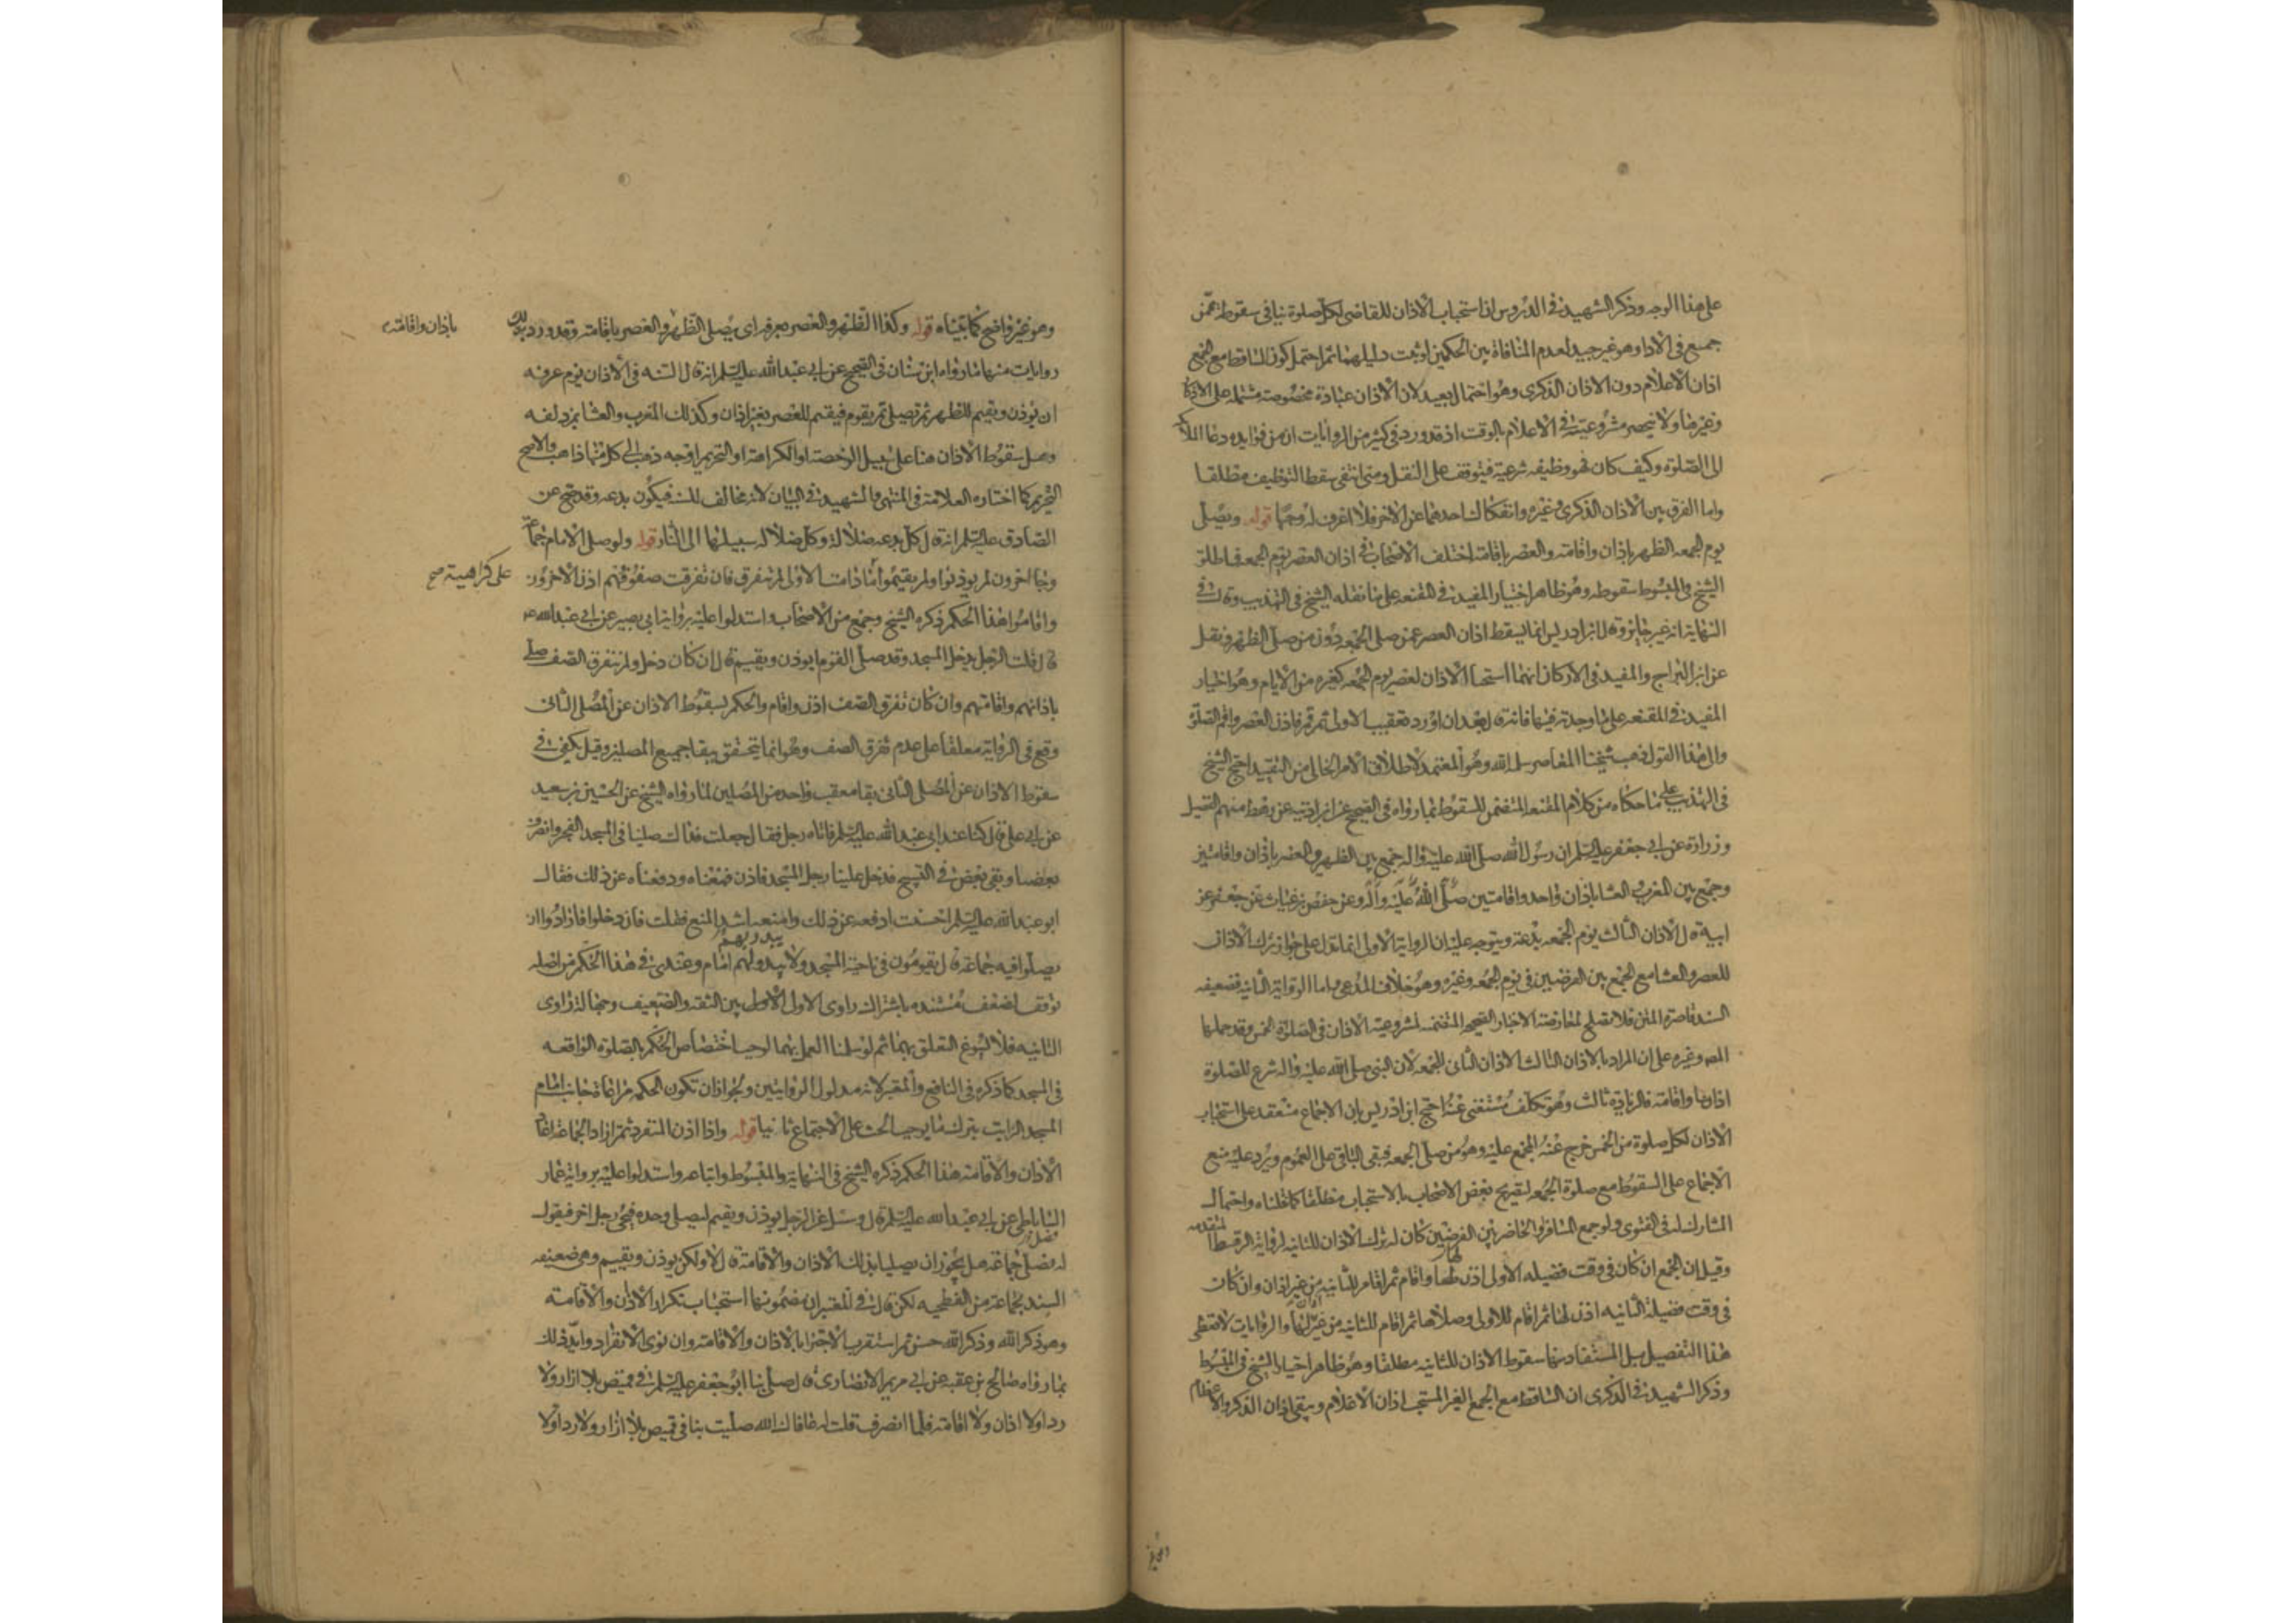 على هذا الوجه وذكر الشهيد في الدروس ان استحباب الاذان للقاضي لكل صلوة ينافي سقوطه عمن
جمع في الادا وهو غير جيد لعدم المنافاة بين الحكمين لو ثبت دليلهما ثم احتمل كون الساقط مع الجمع
اذان الاعلام دون الاذان الذكرى وهو احتمال بعيد لان الاذان عبادة مخصوصة مشتملة على الاذكار
وغيرها ولا ينحصر مشروعيته في الاعلام بالوقت اذ قد ورد في كثير من الروايات ان من فوايده دعا الملائكة
الى الصلوة وكيف كان فهو وظيفه شرعية فيتوقف على النقل ومتى انتفى سقط التوظيف مطلقا
واما الفرق بين الاذان الذكرى وغيره وانفكاك احدهما عن الاخر فلا اعرف له وجها قوله ويصلى
يوم الجمعه الظهر باذان واقامته والعصر باقامته اختلف الاصحاب في اذان العصر يوم الجمعه فاطلق
الشيخ في المبسوط سقوطه وهو ظاهر اختيار المفيد في المقنعه على ما نقله الشيخ في التهذيب وقال في
النهاية انه غير جايز وقال ابن ادريس انما يسقط اذان العصر عمن صلى الجمعه دون من صلى الظهر ونقل
عن ابن البراج والمفيد في الاركان انهما استحبا الاذان لعصر يوم الجمعه كغيره من الايام وهو اختيار
المفيد في المقنعه على ما وجدته فيها فانه قال بعد ان اورد تعقيب الاولى ثم قم فاذن للعصر واقم الصلوة
والى هذا القول ذهب شيخنا المعاصر سلمه الله وهو المعتمد لاطلاق الامر الخالى من التقييد احتج الشيخ
في التهذيب على ما حكاه من كلام المقنعه المتضمن للسقوط بما رواه في الصحيح عن ابن اذينه عن رهط منهم الفضيل
وزرارة عن ابي جعفر عليه السلم ان رسول الله صلى الله عليه واله جمع بين الظهر والعصر باذان واقامتين
وجمع بين المغرب والعشا باذان واحد واقامتين صلى الله عليه واله وعن حفص بن غياث عن جعفر عن
ابيه قال الاذان الثالث يوم الجمعه بدعة ويتوجه عليه ان الرواية الاولى انما تدل على جواز ترك الاذان
للعصر والعشا مع الجمع بين الفرضين في يوم الجمعه وغيره وهو خلاف المدعى واما الرواية الثانيه فضعيفه
السند قاصرة المتن فلا تصلح لمعارضة الاخبار الصحيحه المتضمنه لمشروعية الاذان في الصلوة الخمس وقد حملها
المصه وغيره على ان المراد بالاذان الثالث الاذان الثانى للجمعه لان النبي صلى الله عليه واله شرع للصلوة
اذانا واقامته فالزيادة ثالث وهو تكلف مستغنى عنه احتج ابن ادريس بان الاجماع منعقد على استحباب
الاذان لكل صلوة من الخمس خرج عنه المجمع عليه وهو من صلى الجمعه فبقى الباقي على العموم ويرد عليه منع
الاجماع على السقوط مع صلوة الجمعه لتصريح بعض الاصحاب بالاستحباب مطلقا كما نقلناه واحتمال
المشارك له في الفتوى ولو جمع المسافر او الحاضر بين الفرضين كان له ترك الاذان للثانيه لرواية الرهط المتقدمه
وقيل ان الجمع ان كان في وقت فضيله الاولى اذن لها واقام ثم اقام للثانيه من غير اذان وان كان
في وقت فضيلة الثانيه اذن لها ثم اقام للاولى وصلاها ثم اقام للثانيه من غير اذان والروايات لا تقتضى
هذا التفصيل بل المستفاد منها سقوط الاذان للثانيه مطلقا وهو ظاهر اختيار الشيخ في المبسوط
وذكر الشهيد في الذكرى ان الساقط مع الجمع الغير المستحب اذان الاعلام ويبقى اذان الذكر والاعظام
وهو غير واضح كما بيناه قوله وكذا الظهر والعصر بعرفه اى يصلى الظهر والعصر باقامته وقد ورد بذلك
باذان واقامته
روايات منها ما رواه ابن سنان في الصحيح عن ابي عبد الله عليه السلم انه قال السنه في الاذان يوم عرفه
ان يوذن ويقيم للظهر ثم يصلى ثم يقوم فيقيم للعصر بغير اذان وكذلك المغرب والعشا بمزدلفه
وهل سقوط الاذان هنا على سبيل الرخصة او الكراهة او التحريم اوجه ذهب الى كل منها ذاهب والاصح
التحريم كما اختاره العلامة في المنتهى والشهيد في البيان لانه مخالف للسنه فيكون بدعه وقد صح عن
الصادق عليه السلم انه قال كل بدعه ضلالة وكل ضلاله سبيلها الى النار قوله ولو صلى الامام جماعة
وجا اخرون لم يوذنوا ولم يقيموا ما دامت الاولى لم تتفرق فان تفرقت صفوفهم اذن الاخرون
على كراهية صح
واقاموا هذا الحكم ذكره الشيخ وجمع من الاصحاب واستدلوا عليه برواية ابي بصير عن ابي عبد الله ع
قال قلت الرجل يدخل المسجد وقد صلى القوم ايوذن ويقيم قال ان كان دخل ولم يتفرق الصف صلى
باذانهم واقامتهم وان كان تفرق الصف اذن واقام والحكم بسقوط الاذان عن المصلى الثانى
وقع في الرواية معلقا على عدم تفرق الصف وهو انما يتحقق ببقا جميع المصلين وقيل يكفي في
سقوط الاذان عن المصلى الثانى بقا معقب واحد من المصلين لما رواه الشيخ عن الحسين بن سعيد
عن ابي على قال كنا عند ابي عبد الله عليه السلم فاتاه رجل فقال جعلت فداك صلينا في المسجد الفجر وانصرف
بعضنا وبقى بعض في التسبيح فدخل علينا رجل المسجد فاذن فمنعناه ودفعناه عن ذلك فقال
ابو عبد الله عليه السلم احسنت ادفعه عن ذلك وامنعه اشد المنع فقلت فان دخلوا فارادوا ان
يصلوا فيه جماعة قال يقومون في ناحية المسجد ولا يبدو لهم امام وعندى في هذا الحكم من اصله
يبدر بهم
توقف لضعف مستنده باشتراك راوى الاولى بين الثقه والضعيف وجهالة راوى
الثانيه فلا يسوغ التعلق بهما ثم لو سلمنا العمل بهما لوجب اختصاص الحكم بالصلوة الواقعه
في المسجد كما ذكره في النافع والمعتبر لانه مدلول الروايتين ولجواز ان تكون الحكمه مراعاة جانب امام
المسجد الراتب بترك ما يوجب الحث على الاجتماع ثانيا قوله واذا اذن المنفرد ثم اراد الجماعة اعاد
الاذان والاقامته هذا الحكم ذكره الشيخ في النهاية والمبسوط واتباعه واستدلوا عليه برواية عمار
الساباطى عن ابي عبد الله عليه السلم قال وسئل عن الرجل يوذن ويقيم ليصلى وحده فيجئ رجل اخر فيقول
له نصلى جماعة هل يجوز ان يصليا بذلك الاذان والاقامة قال لا ولكن يوذن ويقيم وهى ضعيفه
السند بجماعة من الفطحيه لكن قال في المعتبر ان مضمونها استحباب تكرار الاذان والاقامته
وهو ذكر الله وذكر الله حسن ثم استقرب الاجتزا بالاذان والاقامته وان نوى الانفراد وايد ذلك
بما رواه صالح بن عقبه عن ابي مريم الانصارى قال صلى بنا ابو جعفر عليه السلم في قميص بلا ازار ولا
ردا ولا اذان ولا اقامته فلما انصرف قلت له عافاك الله صليت بنا في قميص بلا ازار ولا ردا ولا